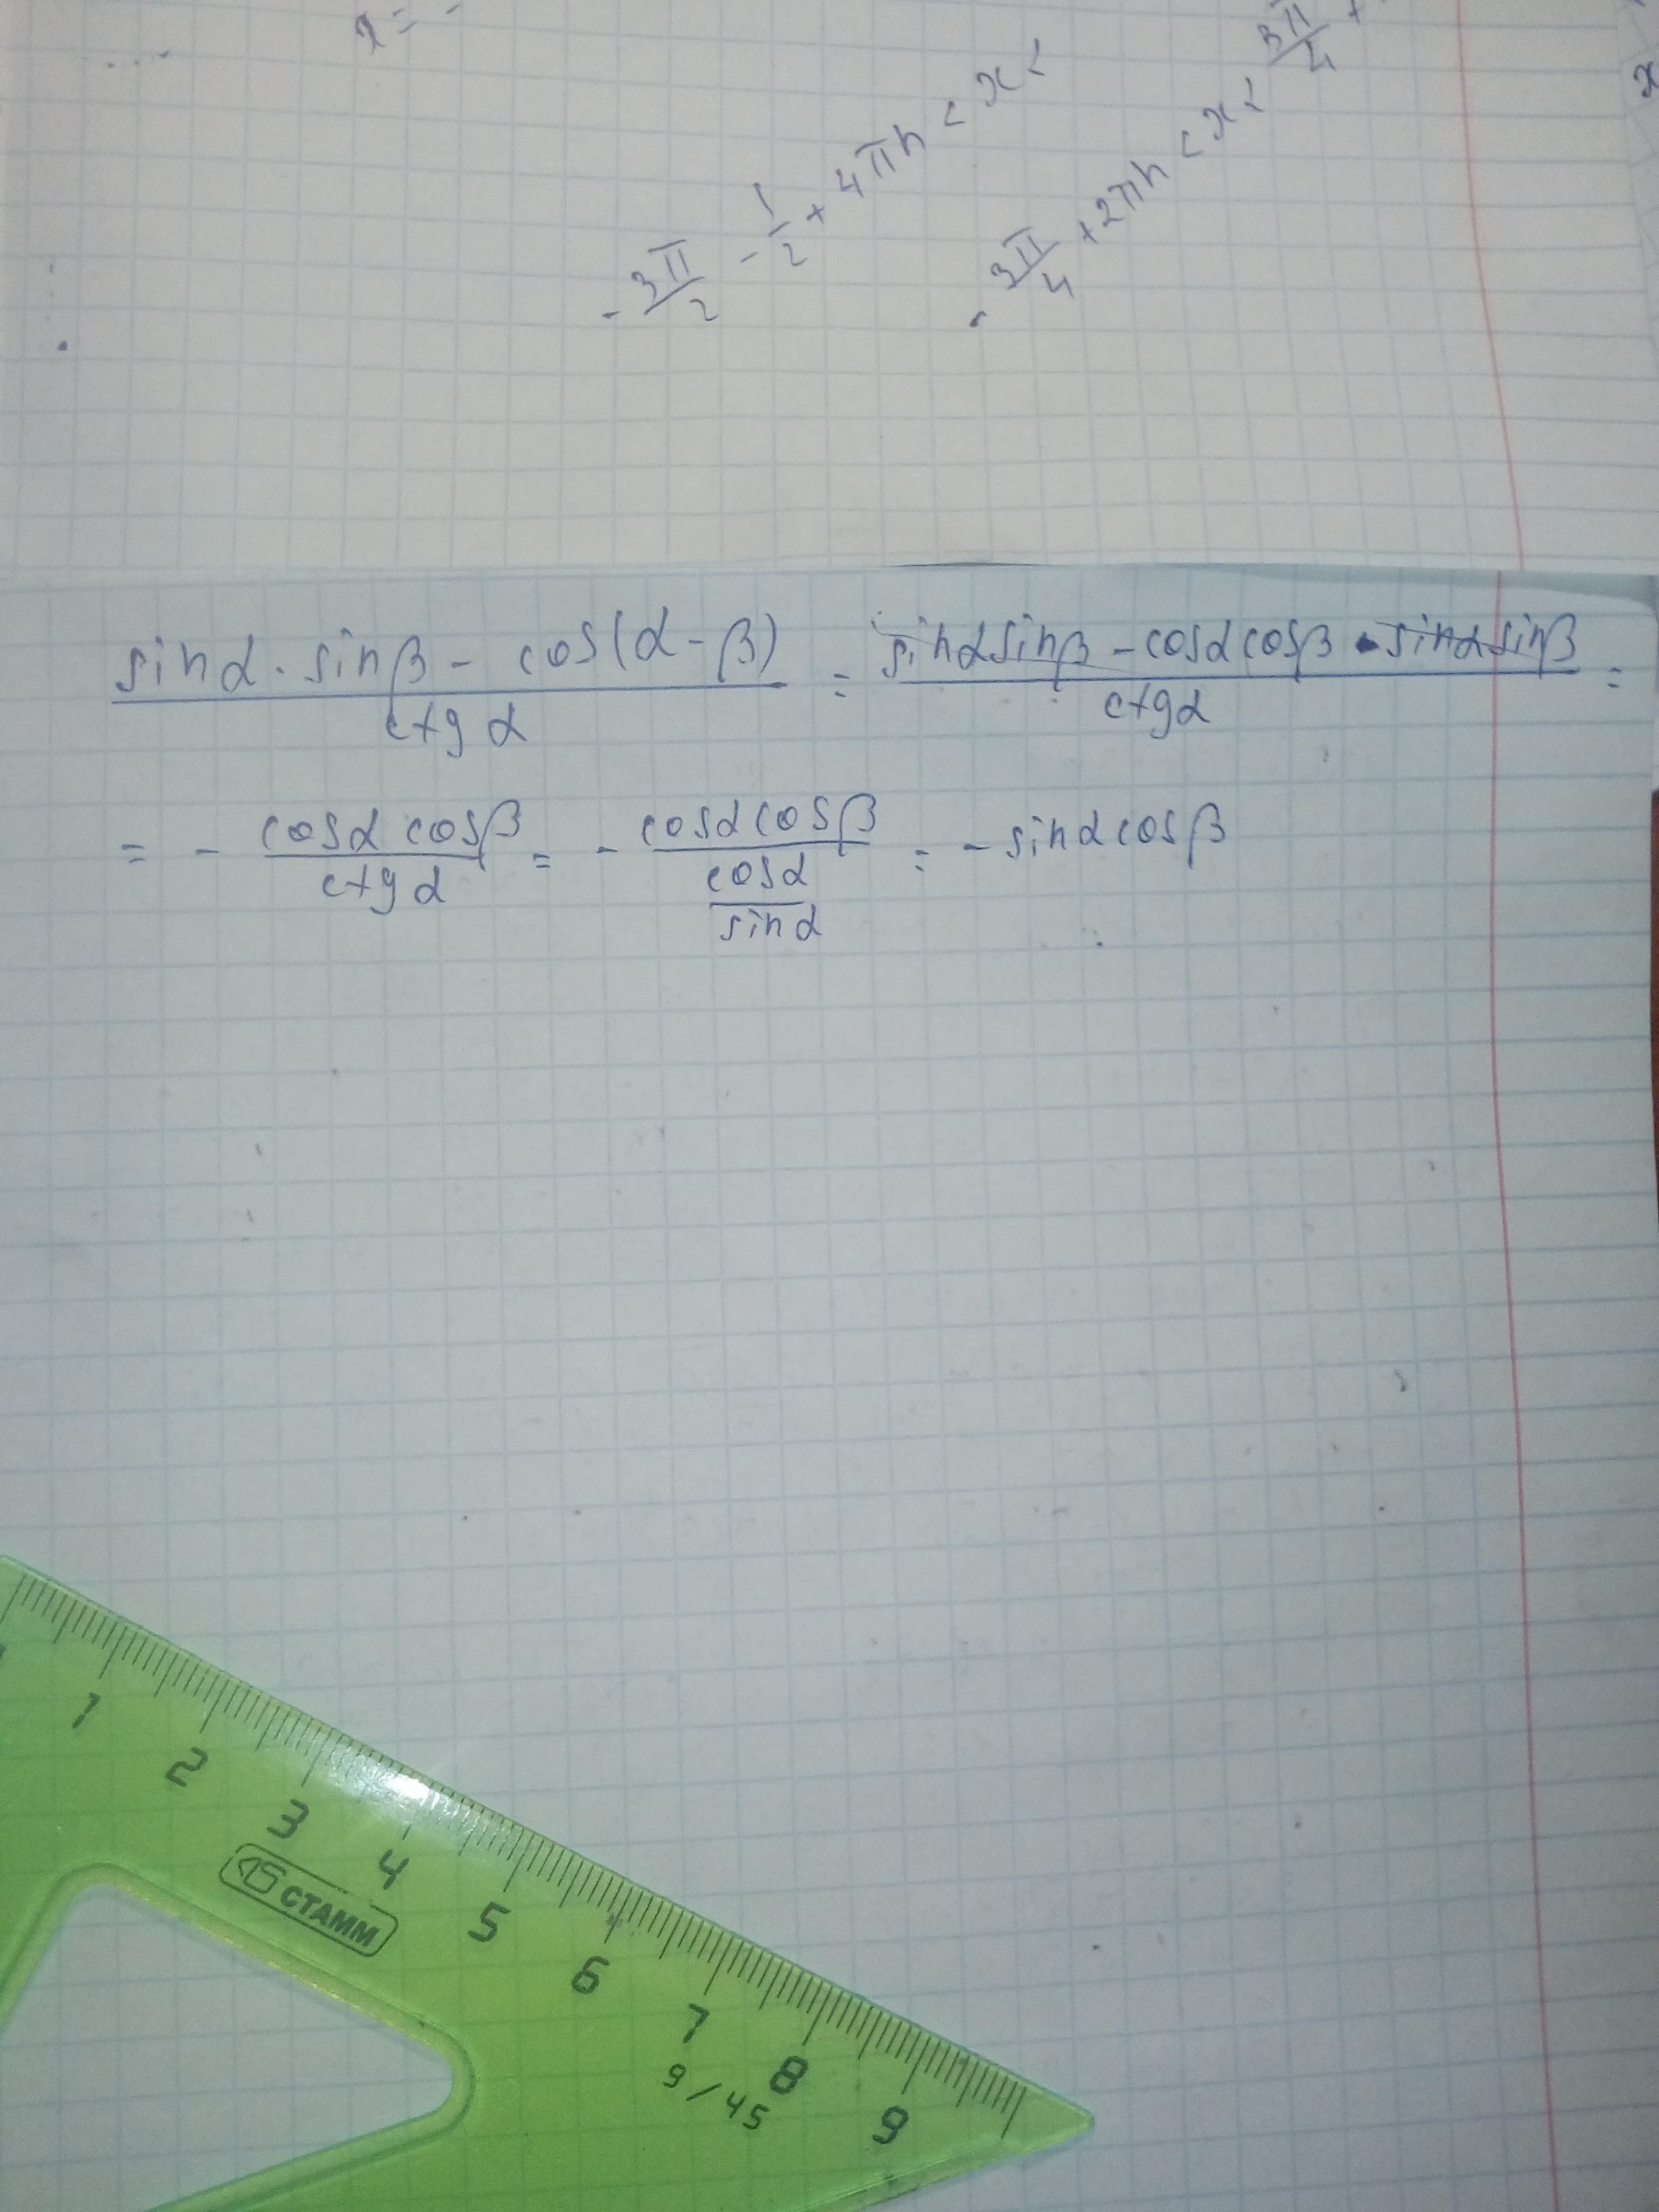 x = -
- 3π/2 - 1/2 + 4πn < x <
- 3π/4 + 2πn < x < 3π/4 +
x
(sinα · sinβ - cos(α - β))/ctgα = (sinα sinβ - cosα cosβ - sinα sinβ)/ctgα =
= - (cosα cosβ)/ctgα = - (cosα cosβ)/(cosα/sinα) = - sinα cosβ
1 2 3 4 5 6 7 8 9
СТАММ
9/45